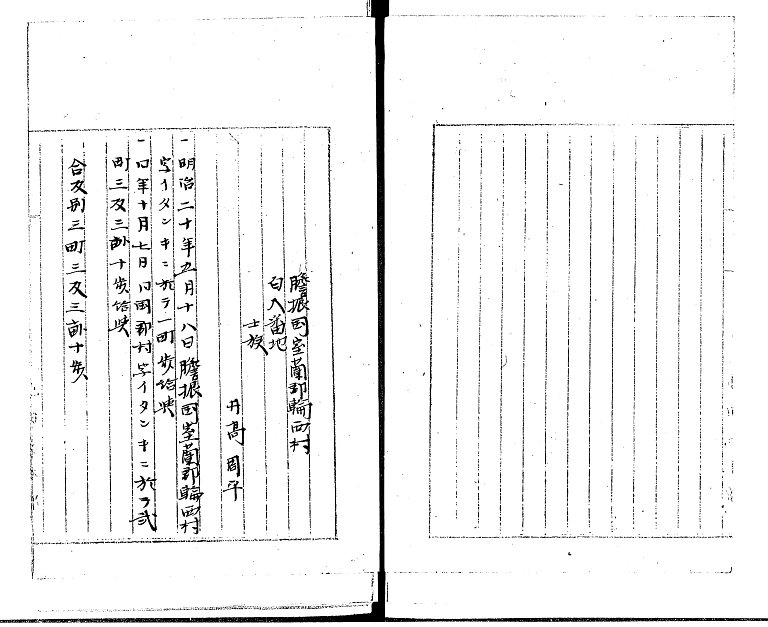 膽振国室蘭郡輪西村
百八番地
士族
井高周平
一明治二十年五月十八日膽振国室蘭郡輪西村
字イタンキニ於テ一町歩給与
一同年十月七日同国郡村字イタンキニ於テ弐
町三反三畝十歩給与
合反別三町三反三畝十歩